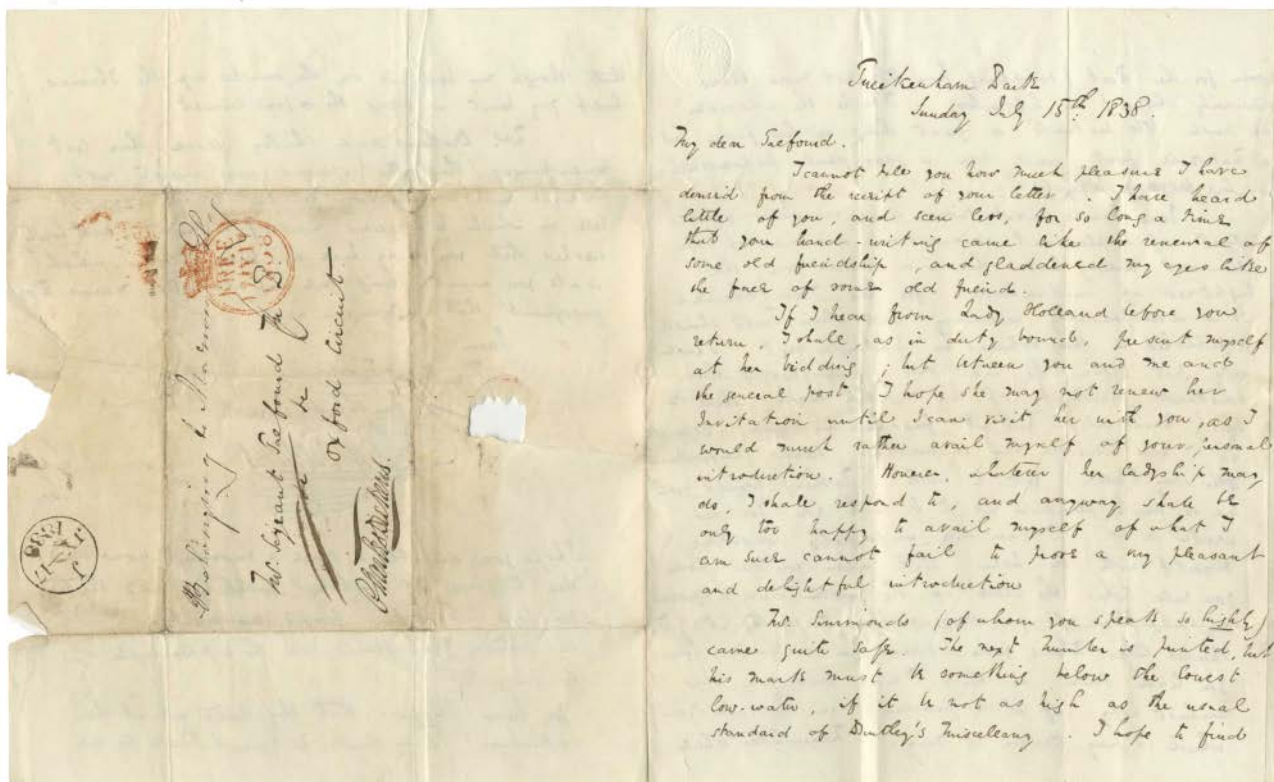 Twickenham Park
Sunday July 15th. 1838.
My dear Talfourd.
I cannot tell you how much pleasure I have
derived from the receipt of your letter. I have heard
little of you, and seen less, for so long a time
that your hand-writing came like the renewal of
some old friendship, and gladdened my eyes like
the face of some old friend.
If I hear from Lady Holland before you
return, I shall, as in duty bound, present myself
at her bidding; but between you and me and
the general post I hope she may not renew her
Invitation until I can visit her with you, as I
would much rather avail myself of your personal
introduction. However, whatever her ladyship may
do, I shall respond to, and anyway shall be
only too happy to avail myself of what I
am sure cannot fail to prove a very pleasant
and delightful introduction
Mr. Simmonds (of whom you speak so highly)
came quite safe. The next number is printed, but
his mark must be something below the lowest
low-water, if it be not as high as the usual
standard of Bentley's Miscellany. I hope to find
Mr. Serjeant Talfourd M.P.
&c
Oxford Circuit
Charles Dickens.
FREE
1838